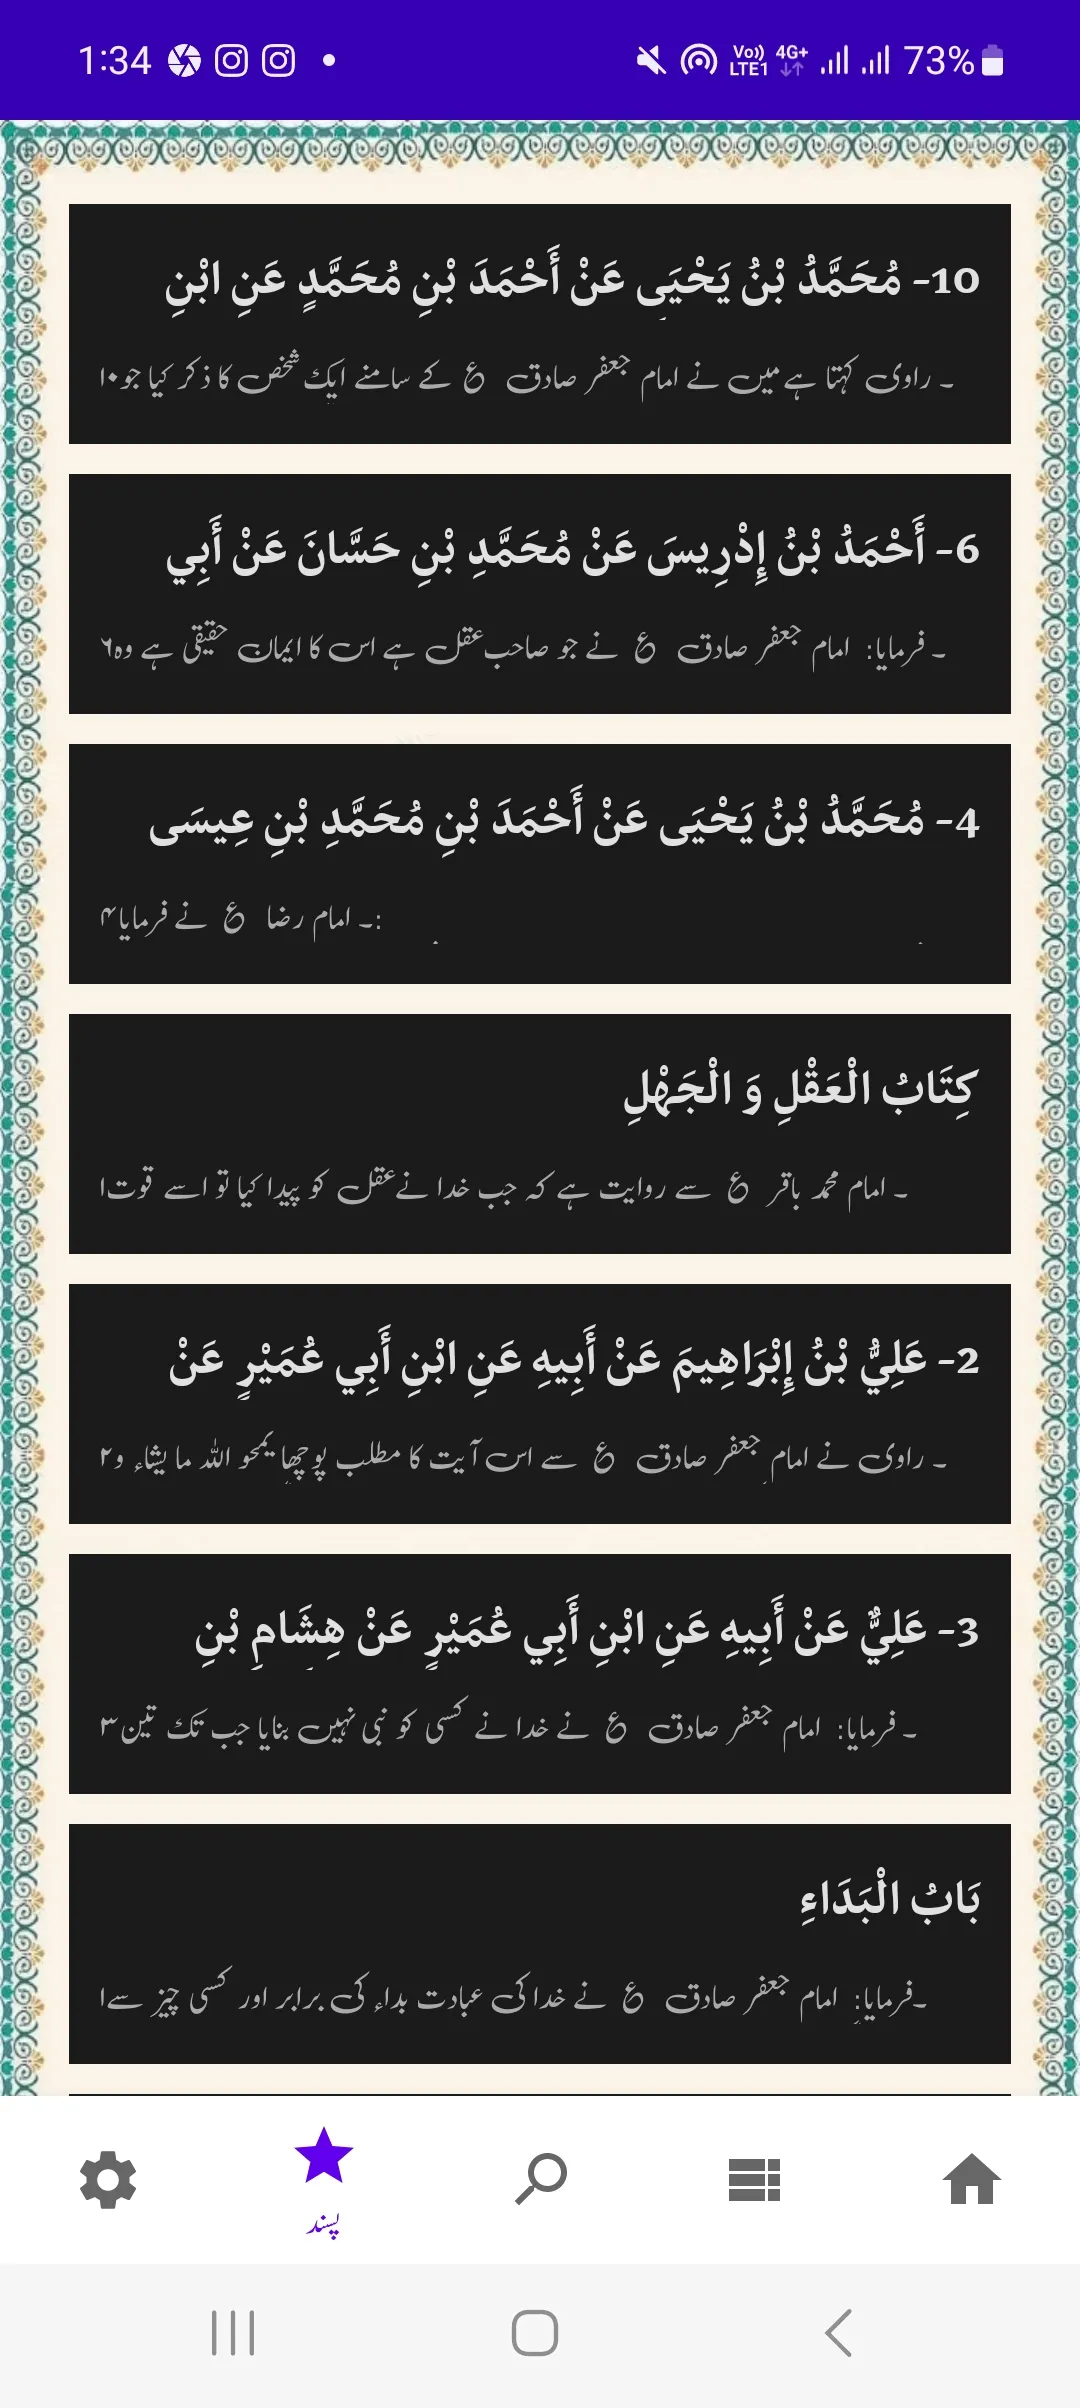 1:34
Vo)) LTE1 4G+ 73%
10- مُحَمَّدُ بْنُ يَحْيَى عَنْ أَحْمَدَ بْنِ مُحَمَّدٍ عَنِ ابْنِ
۱۰۔ راوی کہتا ہے میں نے امام جعفر صادق ع کے سامنے ایک شخص کا ذکر کیا جو
6- أَحْمَدُ بْنُ إِدْرِيسَ عَنْ مُحَمَّدِ بْنِ حَسَّانَ عَنْ أَبِي
۶۔ فرمایا: امام جعفر صادق ع نے جو صاحب عقل ہے اس کا ایمان حقیقی ہے وہ
4- مُحَمَّدُ بْنُ يَحْيَى عَنْ أَحْمَدَ بْنِ مُحَمَّدِ بْنِ عِيسَى
۴۔ امام رضا ع نے فرمایا:
كِتَابُ الْعَقْلِ وَ الْجَهْلِ
۱۔ امام محمد باقر ع سے روایت ہے کہ جب خدا نے عقل کو پیدا کیا تو اسے قوت
2- عَلِيُّ بْنُ إِبْرَاهِيمَ عَنْ أَبِيهِ عَنِ ابْنِ أَبِي عُمَيْرٍ عَنْ
۲۔ راوی نے امام جعفر صادق ع سے اس آیت کا مطلب پوچھا یمحو اللہ ما یشاء و
3- عَلِيٌّ عَنْ أَبِيهِ عَنِ ابْنِ أَبِي عُمَيْرٍ عَنْ هِشَامِ بْنِ
۳۔ فرمایا: امام جعفر صادق ع نے خدا نے کسی کو نبی نہیں بنایا جب تک تین
بَابُ الْبَدَاءِ
۱۔فرمایا: امام جعفر صادق ع نے خدا کی عبادت بداء کی برابر اور کسی چیز سے
پسند